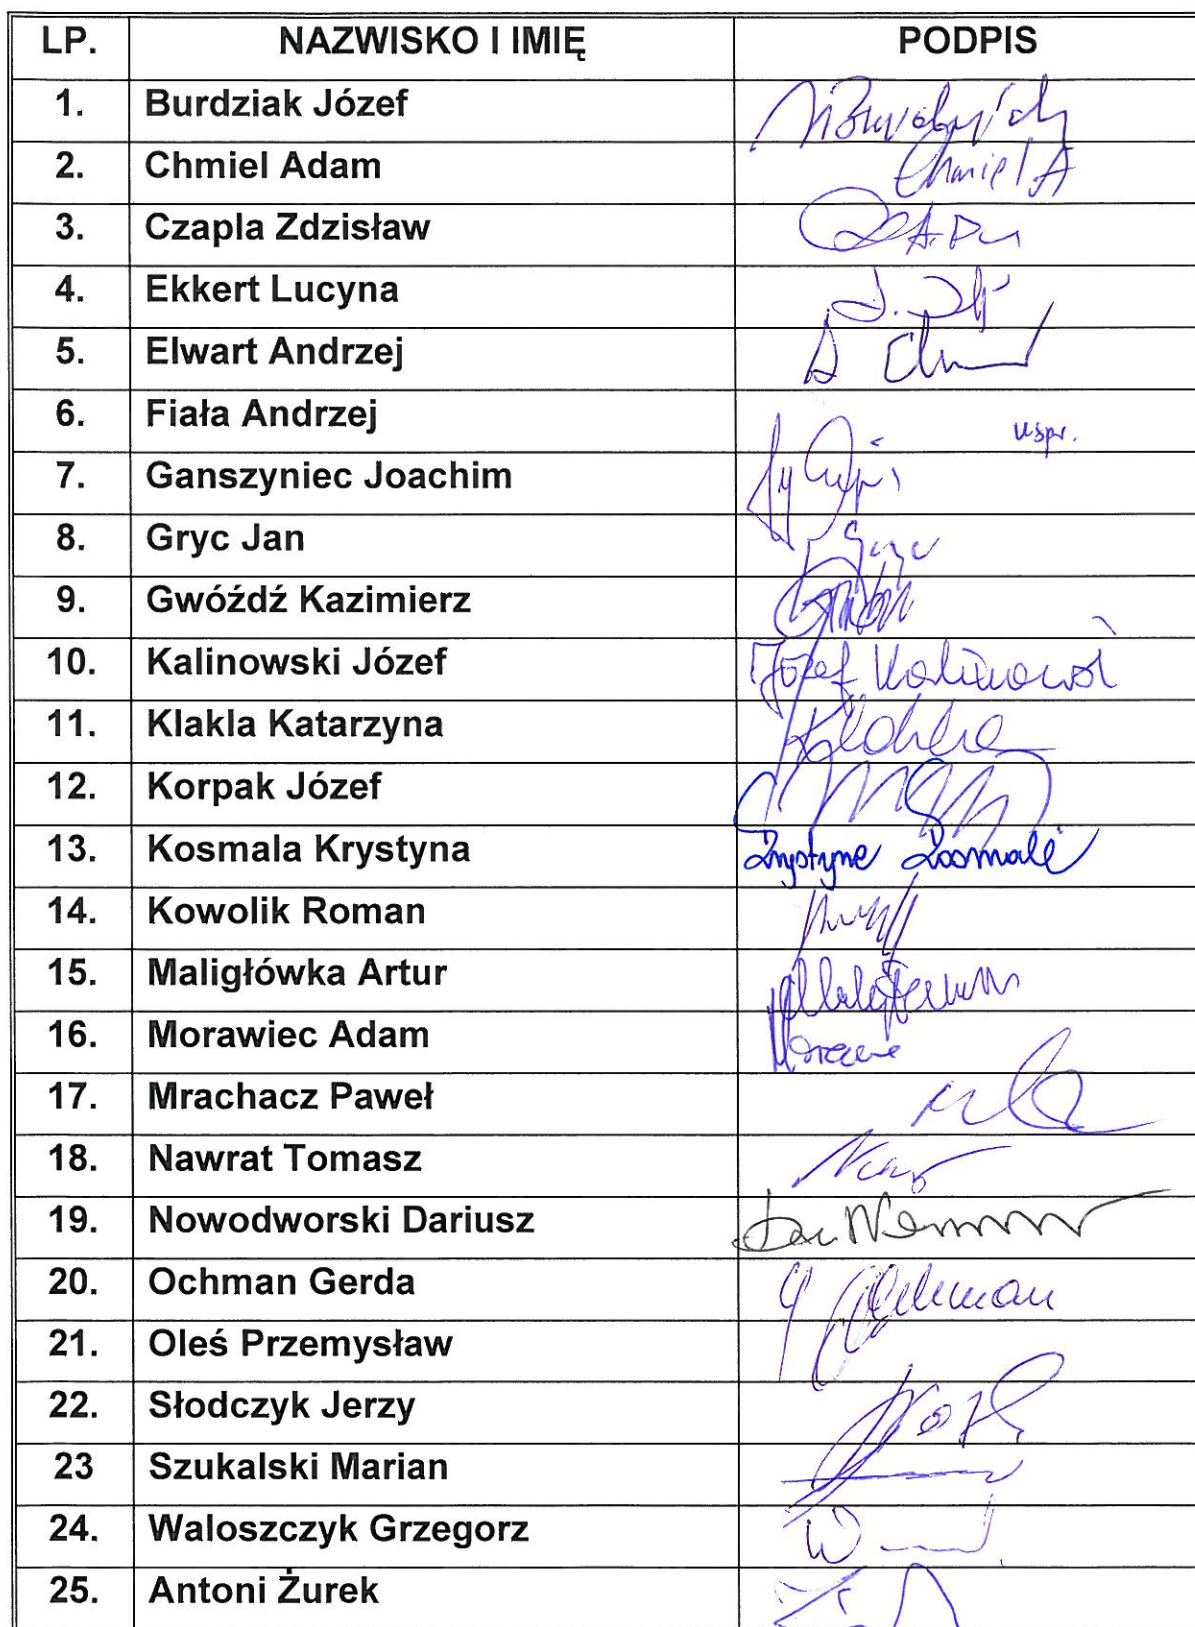 LP. NAZWISKO I IMIĘ PODPIS
1. Burdziak Józef
2. Chmiel Adam Chmiel A
3. Czapla Zdzisław
4. Ekkert Lucyna
5. Elwart Andrzej
6. Fiała Andrzej uspr.
7. Ganszyniec Joachim
8. Gryc Jan
9. Gwóźdź Kazimierz
10. Kalinowski Józef Józef Kalinowski
11. Klakla Katarzyna Klakla
12. Korpak Józef
13. Kosmala Krystyna Krystyna Kosmala
14. Kowolik Roman
15. Maligłówka Artur
16. Morawiec Adam
17. Mrachacz Paweł
18. Nawrat Tomasz
19. Nowodworski Dariusz
20. Ochman Gerda G Ochman
21. Oleś Przemysław
22. Słodczyk Jerzy
23 Szukalski Marian
24. Waloszczyk Grzegorz
25. Antoni Żurek